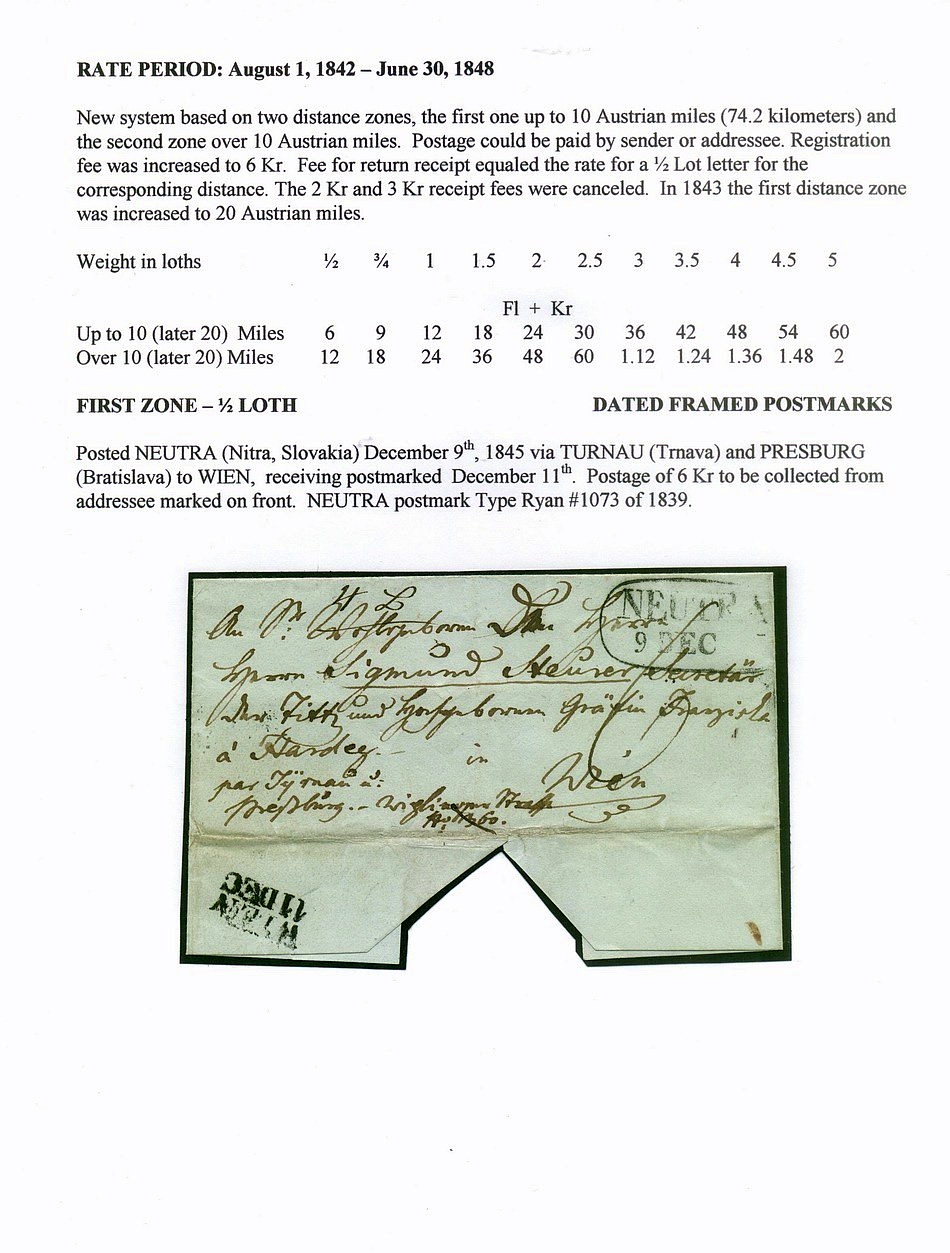 RATE PERIOD: August 1, 1842 – June 30, 1848
New system based on two distance zones, the first one up to 10 Austrian miles (74.2 kilometers) and
the second zone over 10 Austrian miles. Postage could be paid by sender or addressee. Registration
fee was increased to 6 Kr. Fee for return receipt equaled the rate for a ½ Lot letter for the
corresponding distance. The 2 Kr and 3 Kr receipt fees were canceled. In 1843 the first distance zone
was increased to 20 Austrian miles.
Weight in loths ½ ¾ 1 1.5 2 2.5 3 3.5 4 4.5 5
Fl + Kr
Up to 10 (later 20) Miles 6 9 12 18 24 30 36 42 48 54 60
Over 10 (later 20) Miles 12 18 24 36 48 60 1.12 1.24 1.36 1.48 2
FIRST ZONE – ½ LOTH DATED FRAMED POSTMARKS
Posted NEUTRA (Nitra, Slovakia) December 9th, 1845 via TURNAU (Trnava) and PRESBURG
(Bratislava) to WIEN, receiving postmarked December 11th. Postage of 6 Kr to be collected from
addressee marked on front. NEUTRA postmark Type Ryan #1073 of 1839.
NEUTRA
9 DEC
An Sr Wohlgeborn Den Herrn
Herrn Sigmund Steurer Secretär
der Titl und Hochgebornen Gräfin Franziska
á Hardeg in
par Tÿrnau u: Wien
Preßburg
WIEN
11 DEC